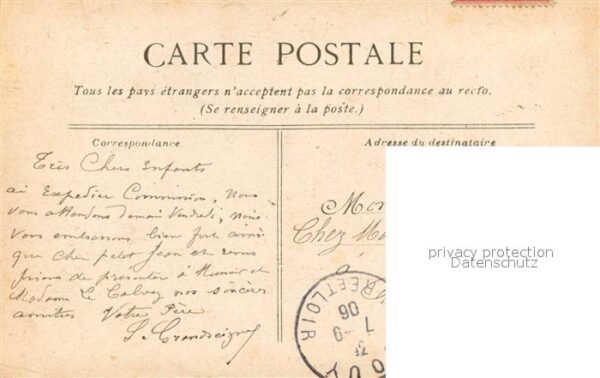 CARTE POSTALE
Tous les pays étrangers n'acceptent pas la correspondance au recto.
(Se renseigner à la poste.)
Correspondance
Très Chers Enfants
ai Expedier Commission, Nous
vous attendons demain Vendredi, Nous
vous embrassons bien fort ainsi
que cher petit Jean et vous
prions de présenter à Monsieur et
Madame Le Calvez nos sincères
amitiés Votre Père
Adresse du destinataire
Mon
Chez M
à
privacy protection
Datenschutz
RE ET LOIR
7 - 9
06